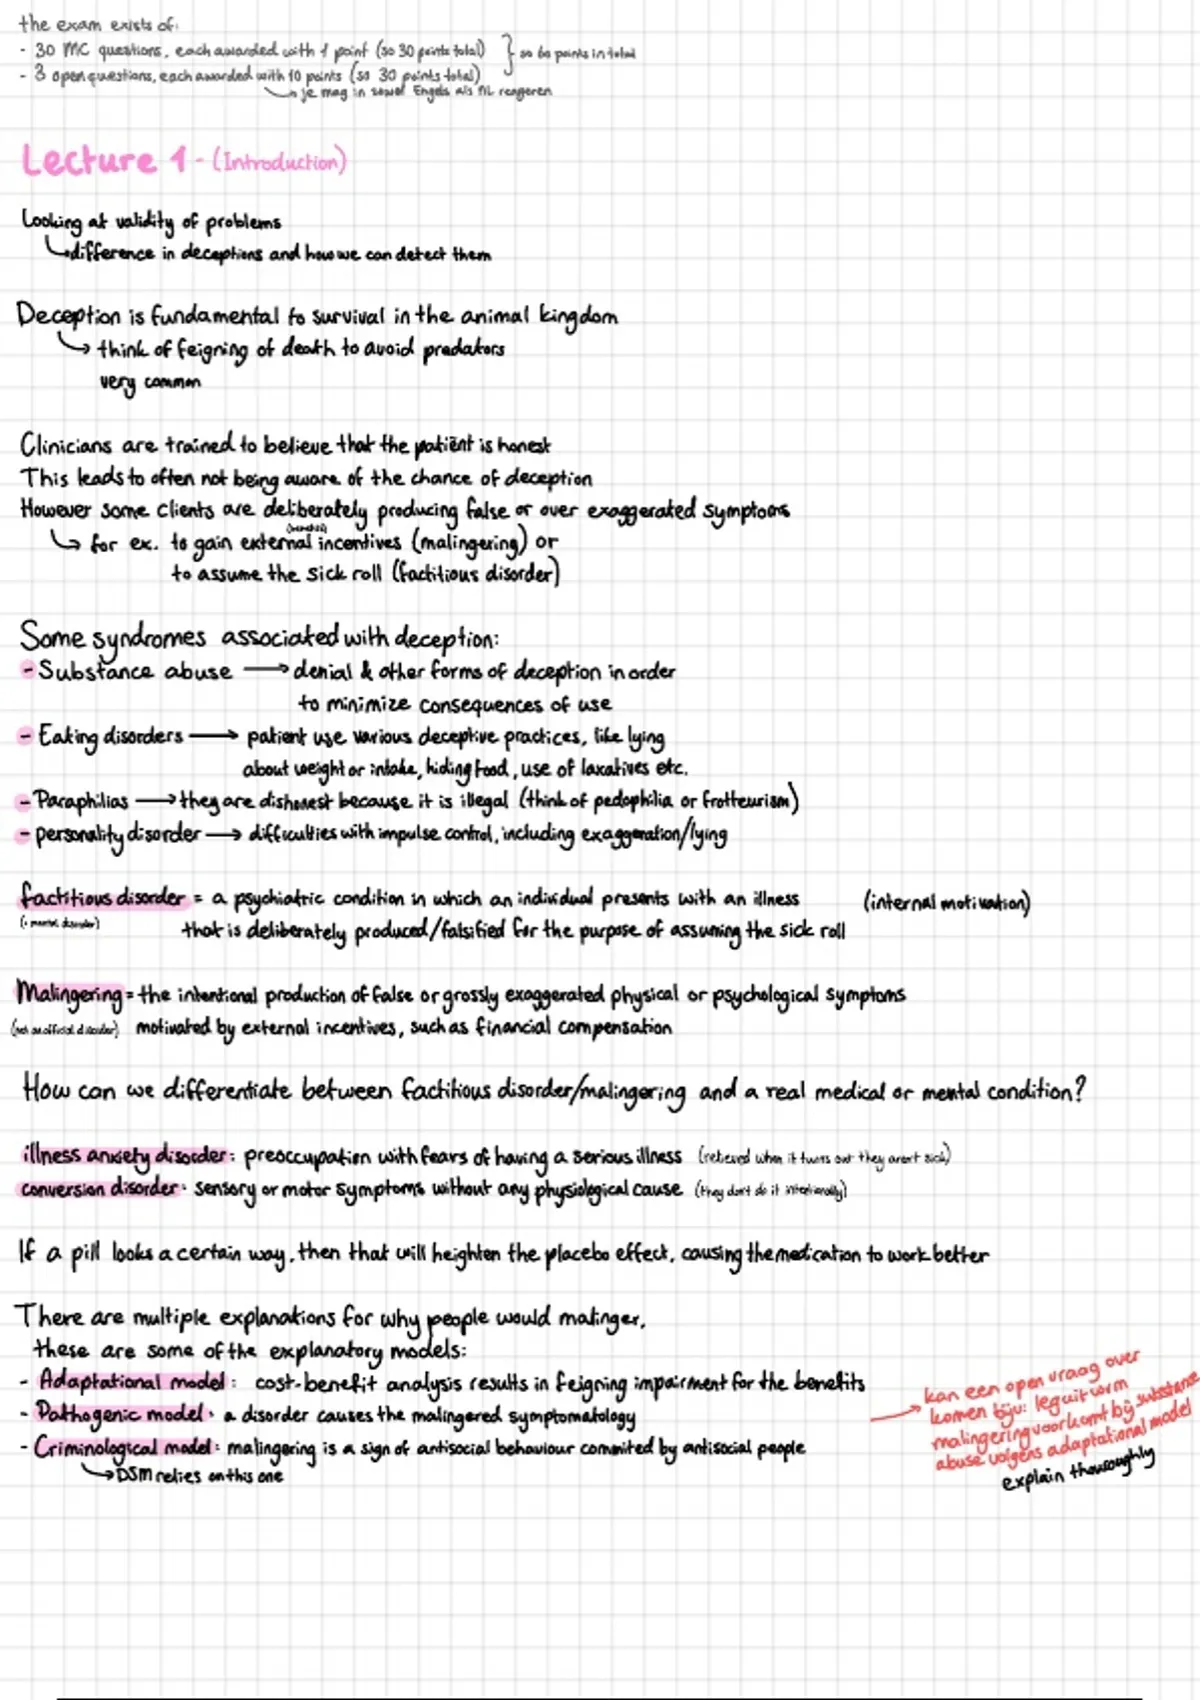 the exam exists of:
- 30 MC questions, each awarded with 1 point (so 30 points total) } so 60 points in total
- 3 open questions, each awarded with 10 points (so 30 points total)
je mag in zowel Engels als NL reageren
Lecture 1 - (Introduction)
Looking at validity of problems
difference in deceptions and how we can detect them
Deception is fundamental to survival in the animal kingdom
think of feigning of death to avoid predators
very common
Clinicians are trained to believe that the patiënt is honest
This leads to often not being aware of the chance of deception
However some clients are deliberately producing false or over exaggerated symptoms
for ex. to gain external incentives (malingering) or
to assume the sick roll (factitious disorder)
Some syndromes associated with deception:
- Substance abuse → denial & other forms of deception in order
to minimize consequences of use
- Eating disorders → patient use various deceptive practices, like lying
about weight or intake, hiding food, use of laxatives etc.
- Paraphilias → they are dishonest because it is illegal (think of pedophilia or frotteurism)
- personality disorder → difficulties with impulse control, including exaggeration/lying
factitious disorder = a psychiatric condition in which an individual presents with an illness (internal motivation)
(is mental disorder) that is deliberately produced/falsified for the purpose of assuming the sick roll
Malingering = the intentional production of false or grossly exaggerated physical or psychological symptoms
(not an official disorder) motivated by external incentives, such as financial compensation
How can we differentiate between factitious disorder/malingering and a real medical or mental condition?
illness anxiety disorder: preoccupation with fears of having a serious illness (relieved when it turns out they arent sick)
conversion disorder: sensory or motor symptoms without any physiological cause (they don't do it intentionally)
If a pill looks a certain way, then that will heighten the placebo effect, causing the medication to work better
There are multiple explanations for why people would malinger,
these are some of the explanatory models:
- Adaptational model: cost-benefit analysis results in feigning impairment for the benefits
- Pathogenic model: a disorder causes the malingered symptomatology
- Criminological model: malingering is a sign of antisocial behaviour commited by antisocial people
DSM relies on this one
kan een open vraag over
komen bijv: leg uit
malingering voorkomt bij substance
abuse volgens adaptational model
explain thouroughly